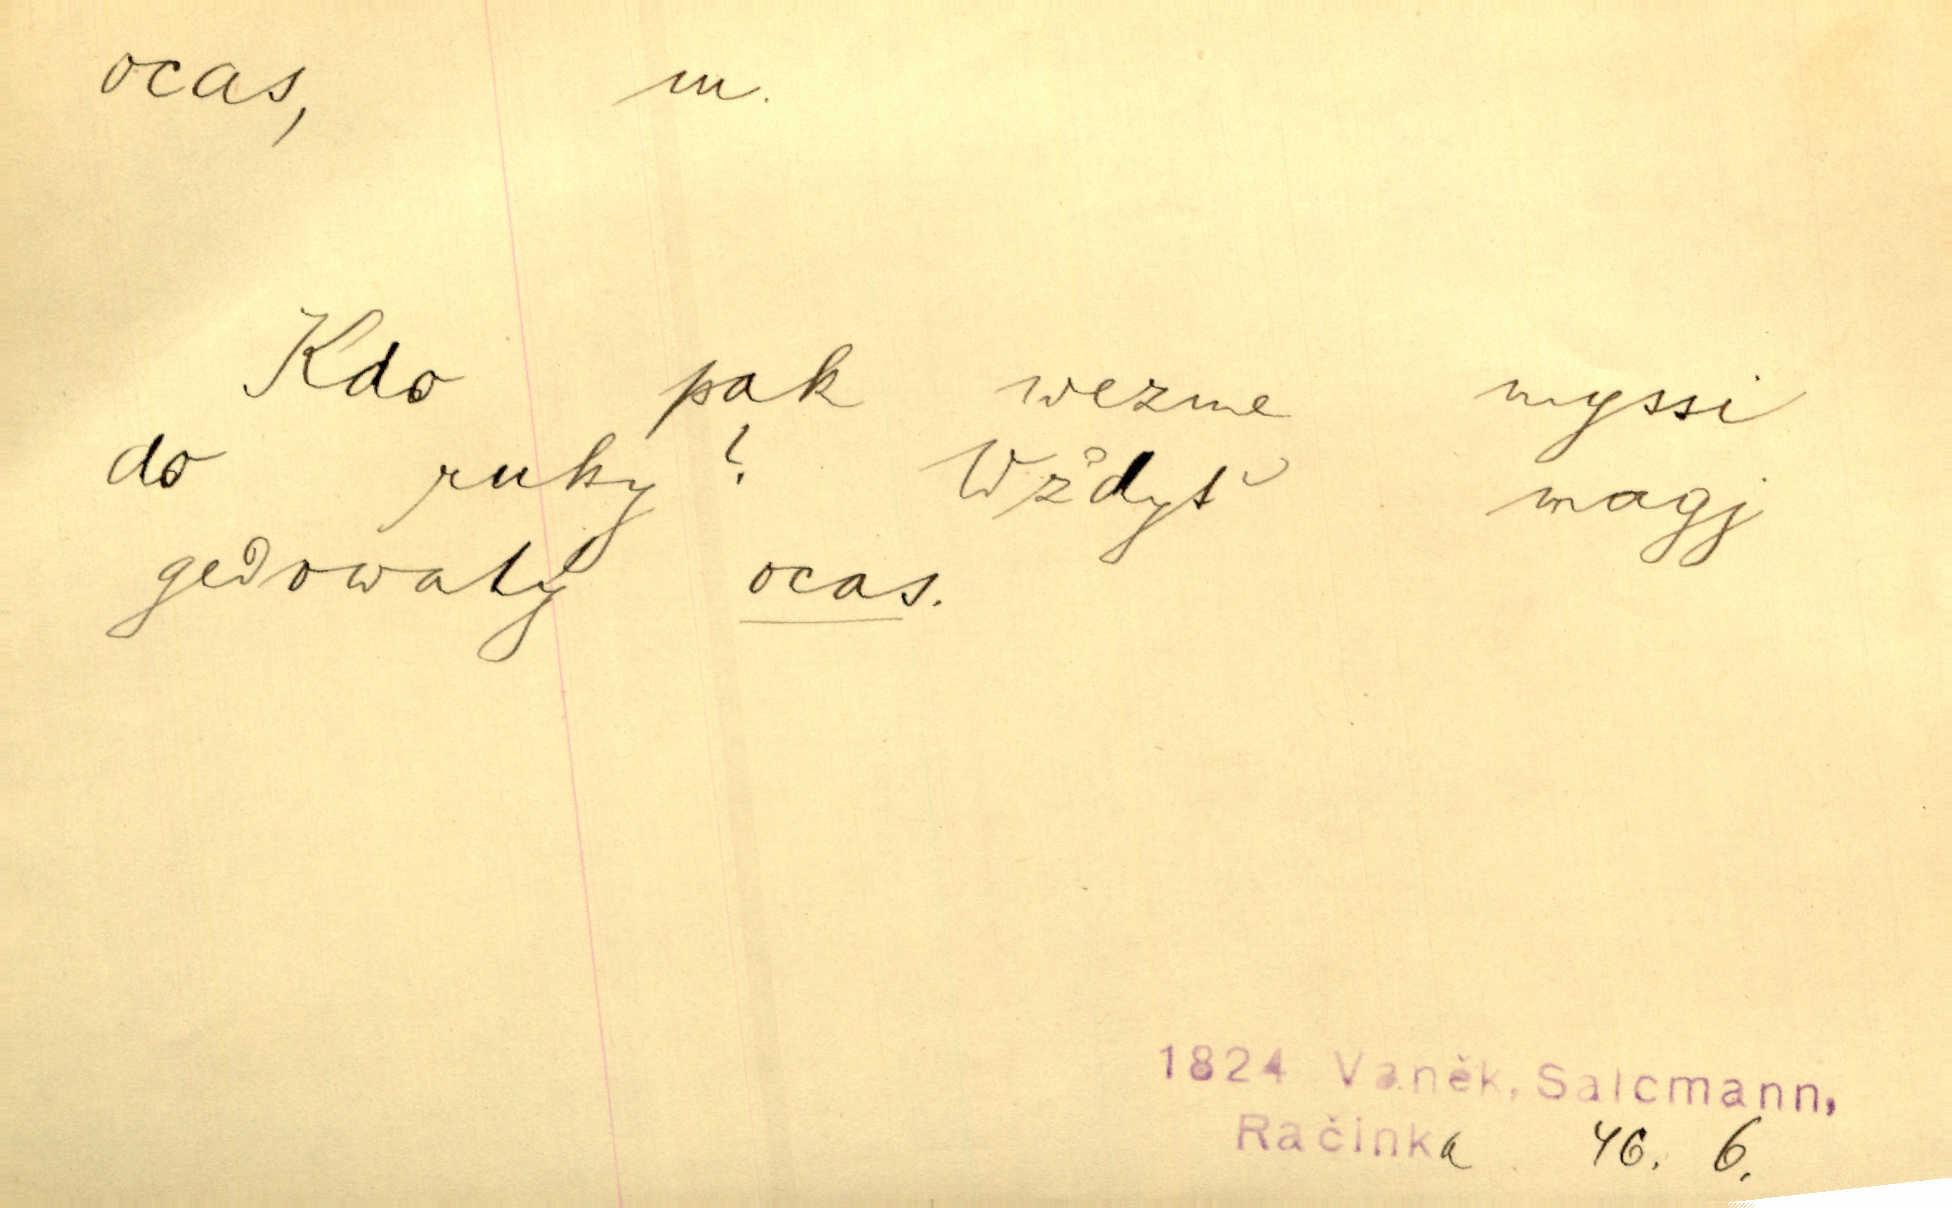 ocas, m.
Kdo pak wezme myssi
do ruky? Wždyť magj
gedowatý ocas.
1824 Vaněk, Salcmann,
Račinka 46. 6.